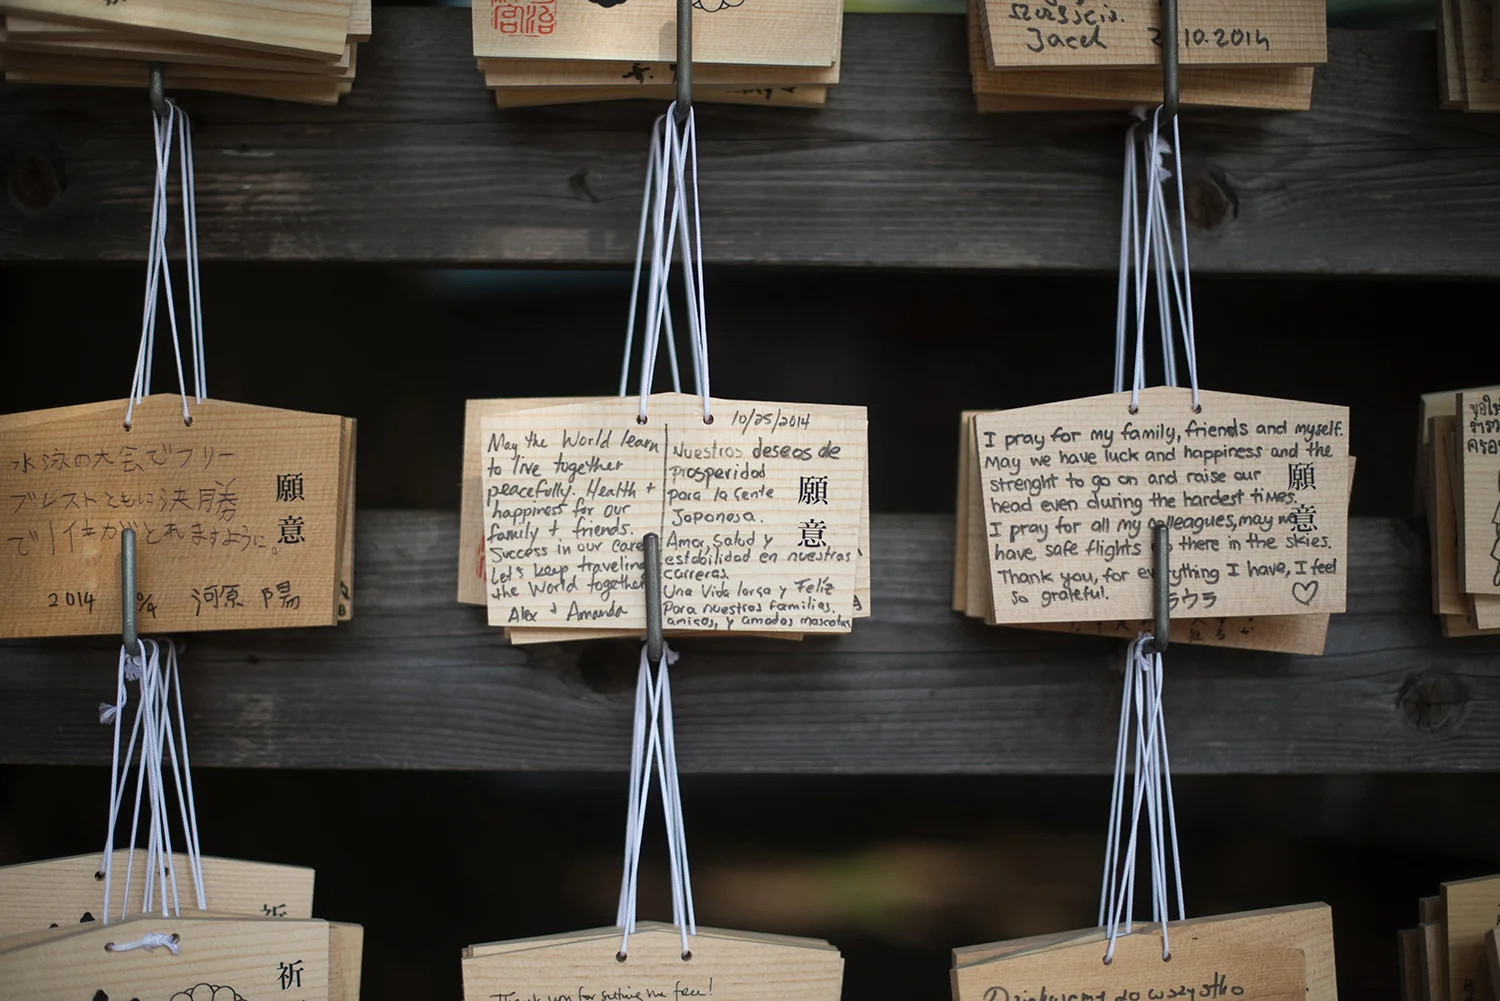 Jacek 2.10.2014
水泳の大会でフリー
ブレストともに決勝
で
とれますように。
2014
河原 陽
願意
10/25/2014
May the World learn
to live together
peacefully. Health +
happiness for our
family + friends.
Success in our care
Let's keep traveling
the World together
Alex + Amanda
Nuestros deseos de
prosperidad
para la Gente
Japonesa.
Amor, Salud y
estabilidad en nuestras
carreras.
Una Vida larga y Feliz
Para nuestras familias.
amigos, y amados mascotas
願意
I pray for my family, friends and myself.
May we have luck and happiness and the
strenght to go on and raise our
head even during the hardest times.
I pray for all my colleagues, may we
have safe flights there in the skies.
Thank you, for everything I have, I feel
so grateful.
ラウラ
願意
祈
祈
Thank you for setting me free!
Dziękujemy za wszystko